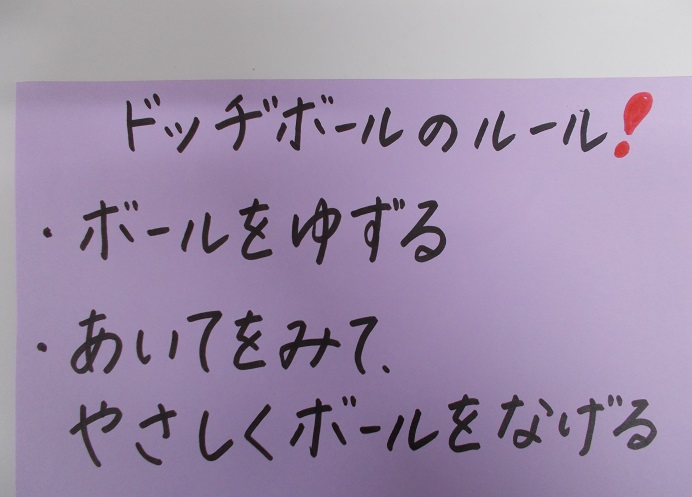 ドッヂボールのルール!
・ボールをゆずる
・あいてをみて、
やさしくボールをなげる